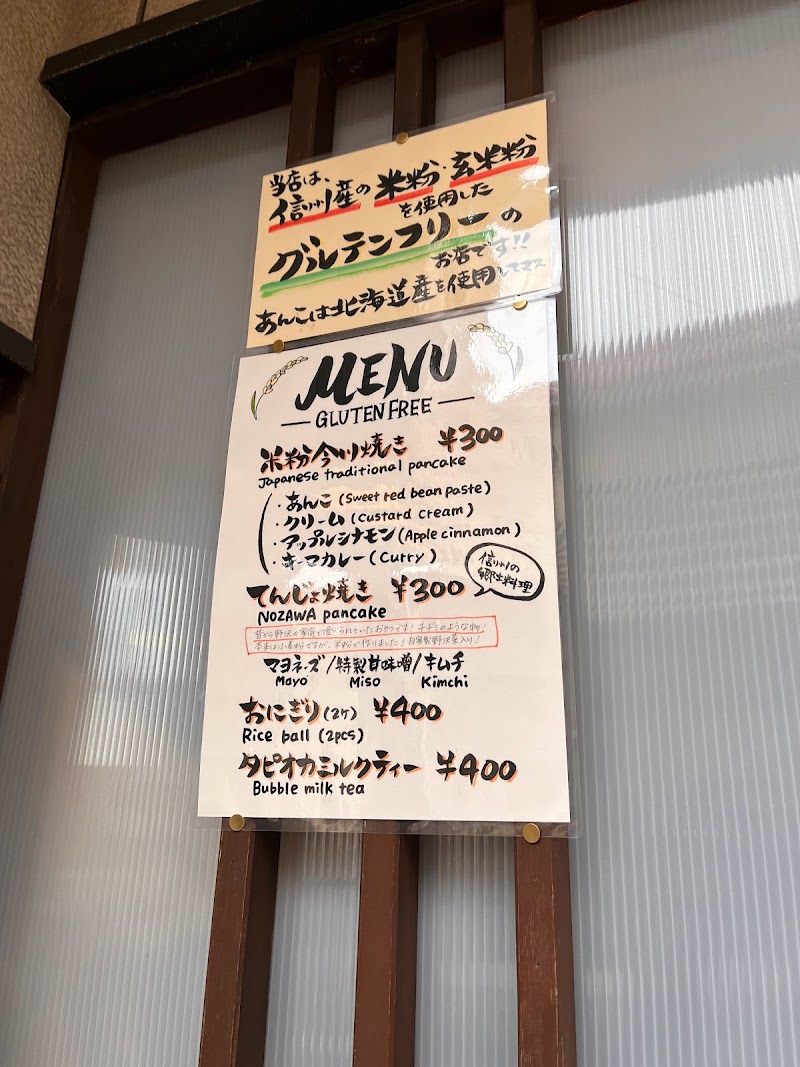 当店は、
信州産の米粉・玄米粉
を使用した
グルテンフリーの
お店です!!
あんこは北海道産を使用してます
MENU
GLUTEN FREE
米粉今川焼き ¥300
Japanese traditional pancake
・あんこ (Sweet red bean paste)
・クリーム (Custard cream)
・アップルシナモン (Apple cinnamon)
・キーマカレー (Curry)
てんじょ焼き ¥300
信州の
郷土料理
NOZAWA pancake
昔から野沢の家庭で食べられていたおやつです!チヂミのような物!
本来は小麦粉ですが、米粉で作りました!自家製野沢菜入り!
マヨネーズ/特製甘味噌/キムチ
Mayo Miso Kimchi
おにぎり(2ケ) ¥400
Rice ball (2pcs)
タピオカミルクティー ¥400
Bubble milk tea